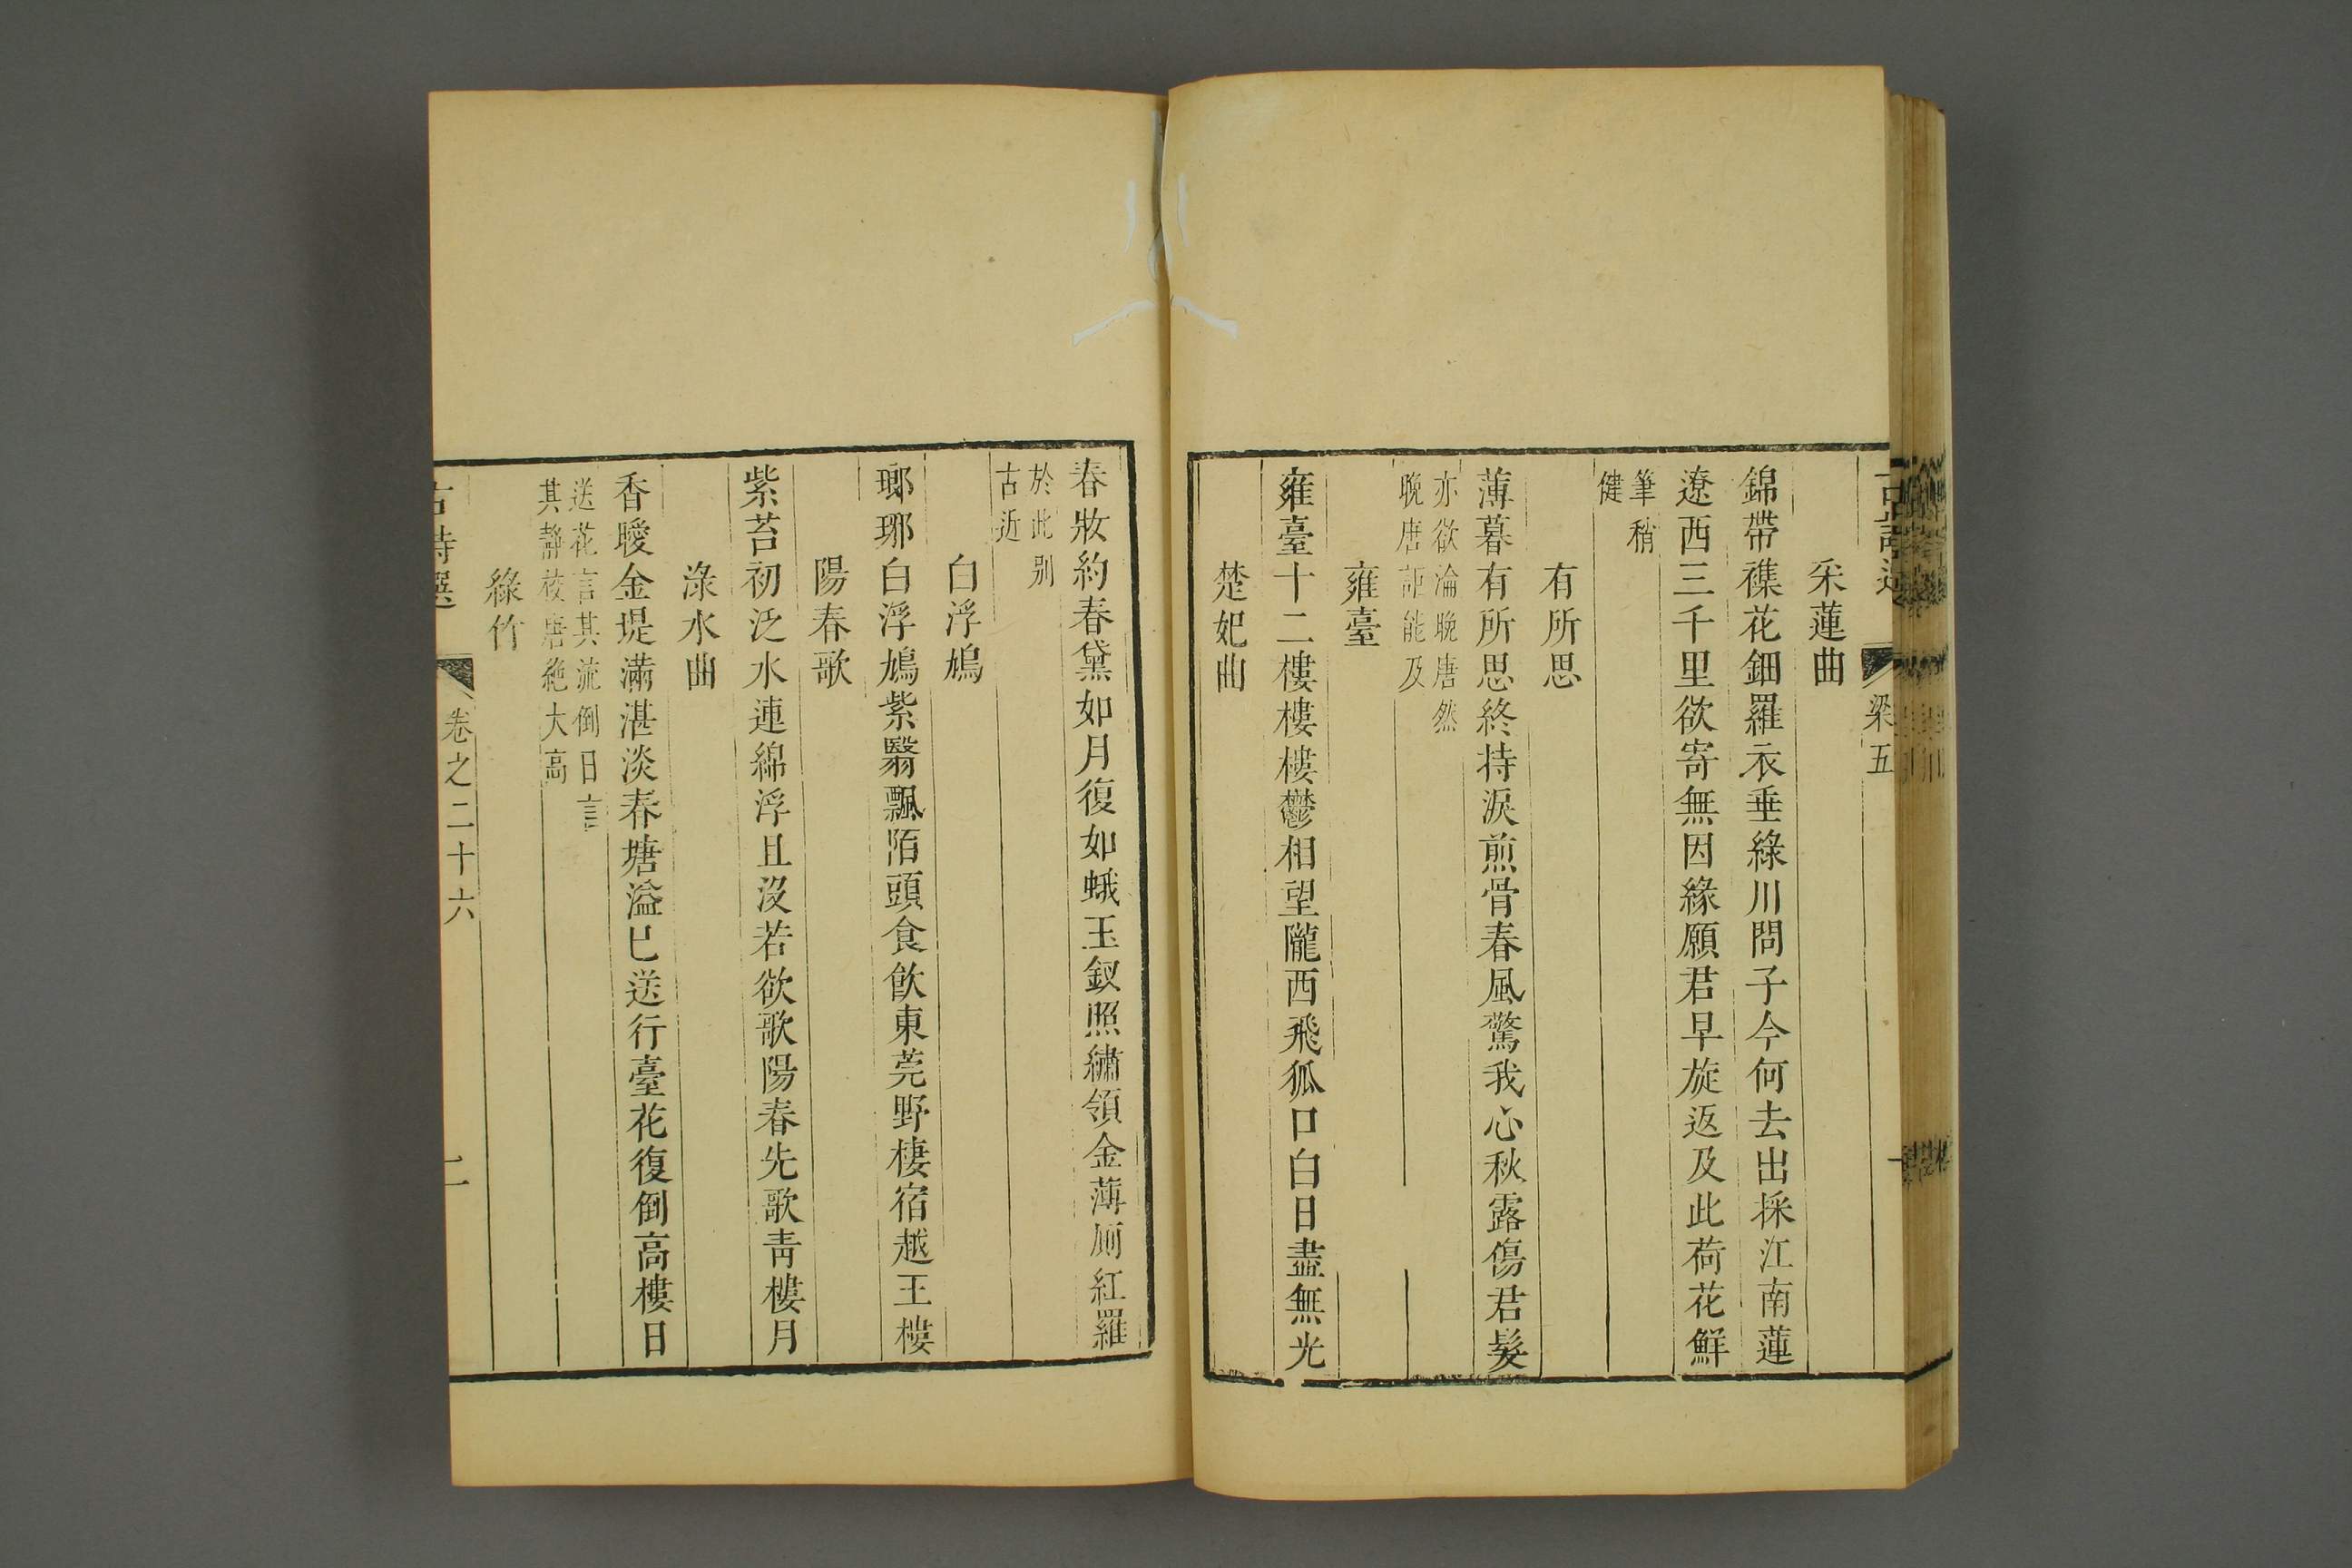 梁五
采蓮曲
錦帶襍花鈿羅衣垂綠川問子今何去出採江南蓮
遼西三千里欲寄無因緣願君早旋返及此荷花鮮
筆稍
健
有所思
薄暮有所思終持淚煎骨春風驚我心秋露傷君髮
亦欲淪晚唐然
晚唐詎能及
雍臺
雍臺十二樓樓樓鬱相望隴西飛狐口白日盡無光
楚妃曲
春妝約春黛如月復如蛾玉釵照繡領金薄廁紅羅
於此別
古近
白浮鳩
瑯琊白浮鳩紫翳飄陌頭食飲東莞野棲宿越王樓
陽春歌
紫苔初泛水連綿浮且沒若欲歌陽春先歌青樓月
淥水曲
香曖金堤滿湛淡春塘溢已送行臺花復倒高樓日
送花言其流倒日言
其靜校唐絶大高
綠竹
古詩選
卷之二十六
二